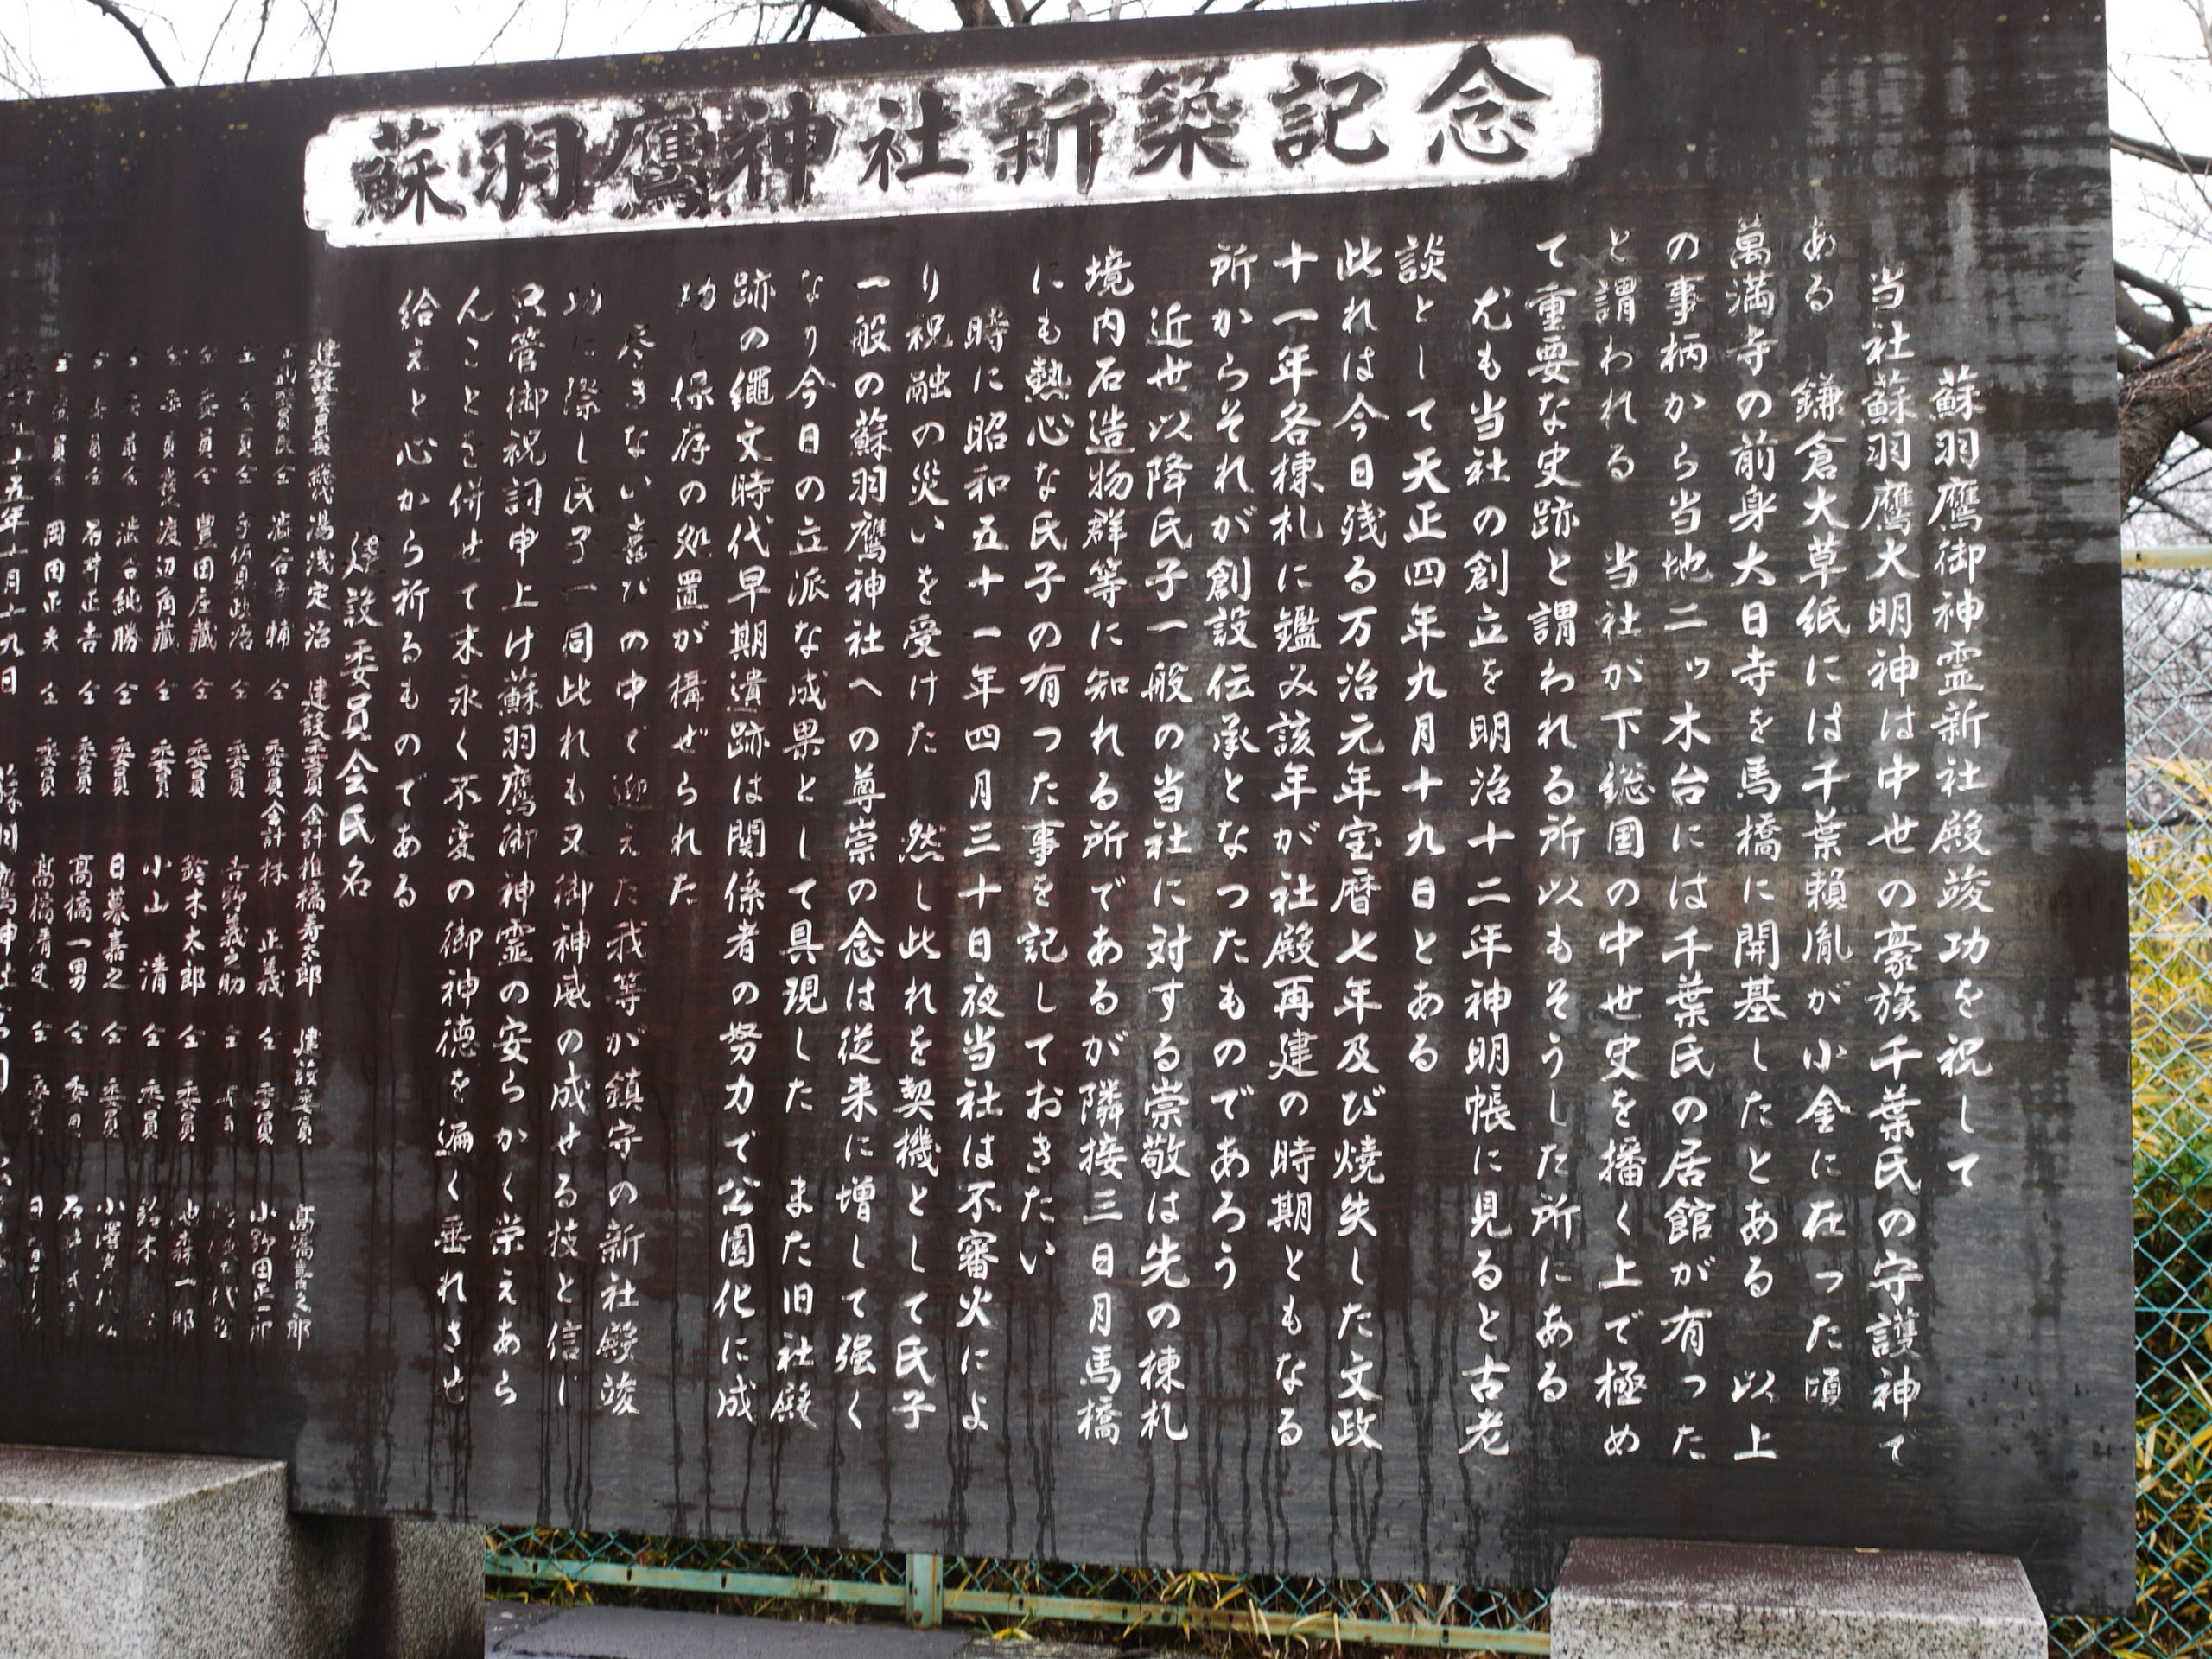 蘇羽鷹神社新築記念
蘇羽鷹御神霊新社殿竣功を祝して
当社蘇羽鷹大明神は中世の豪族千葉氏の守護神で
ある 鎌倉大草紙には千葉頼胤が小金に在った頃
萬満寺の前身大日寺を馬橋に開基したとある 以上
の事柄から当地二ッ木台には千葉氏の居館が有った
と謂われる 当社が下総国の中世史を播く上で極め
て重要な史跡と謂われる所以もそうした所にある
尤も当社の創立を明治十二年神明帳に見ると古老
談として天正四年九月十九日とある
此れは今日残る万治元年宝暦七年及び焼失した文政
十一年各棟札に鑑み該年が社殿再建の時期ともなる
所からそれが創設伝承となつたものであろう
近世以降氏子一般の当社に対する崇敬は先の棟札
境内石造物群等に知れる所であるが隣接三日月馬橋
にも熱心な氏子の有つた事を記しておきたい
時に昭和五十一年四月三十日夜当社は不審火によ
り祝融の災いを受けた 然し此れを契機として氏子
一般の蘇羽鷹神社への尊崇の念は従来に増して強く
なり今日の立派な成果として具現した また旧社殿
跡の繩文時代早期遺跡は関係者の努力で公園化に成
功し保存の処置が構ぜられた
尽きない喜びの中で迎えた我等が鎮守の新社殿竣
功に際し氏子一同此れも又御神威の成せる技と信じ
只管御祝詞申上け蘇羽鷹御神霊の安らかく栄えあら
んことを併せて末永く不変の御神徳を遍く垂れさせ
給えと心から祈るものである
建設委員会氏名
建設委員長 総代 湯浅定治 建設委員会計 椎橋寿太郎 建設委員 高橋喜之郎
仝 仝 委員会計 林 正義 仝 委員 小野田
委員 仝 政治 仝 委員 吉野義之助 仝
仝 委員 仝 豊田庄藏 仝 委員 鈴木太郎 仝 委員 一郎
仝 委員 渡辺角藏 仝 委員 小山 清 仝 委員 鈴木
仝 委員 仝 澁谷純勝 仝 委員 日暮嘉之 仝 委員 小澤
仝 委員 仝 石井正吉 仝 委員 高橋一男 仝 委員
仝 委員 仝 岡田正夫 仝 委員 高橋清 仝
五年 月十九日